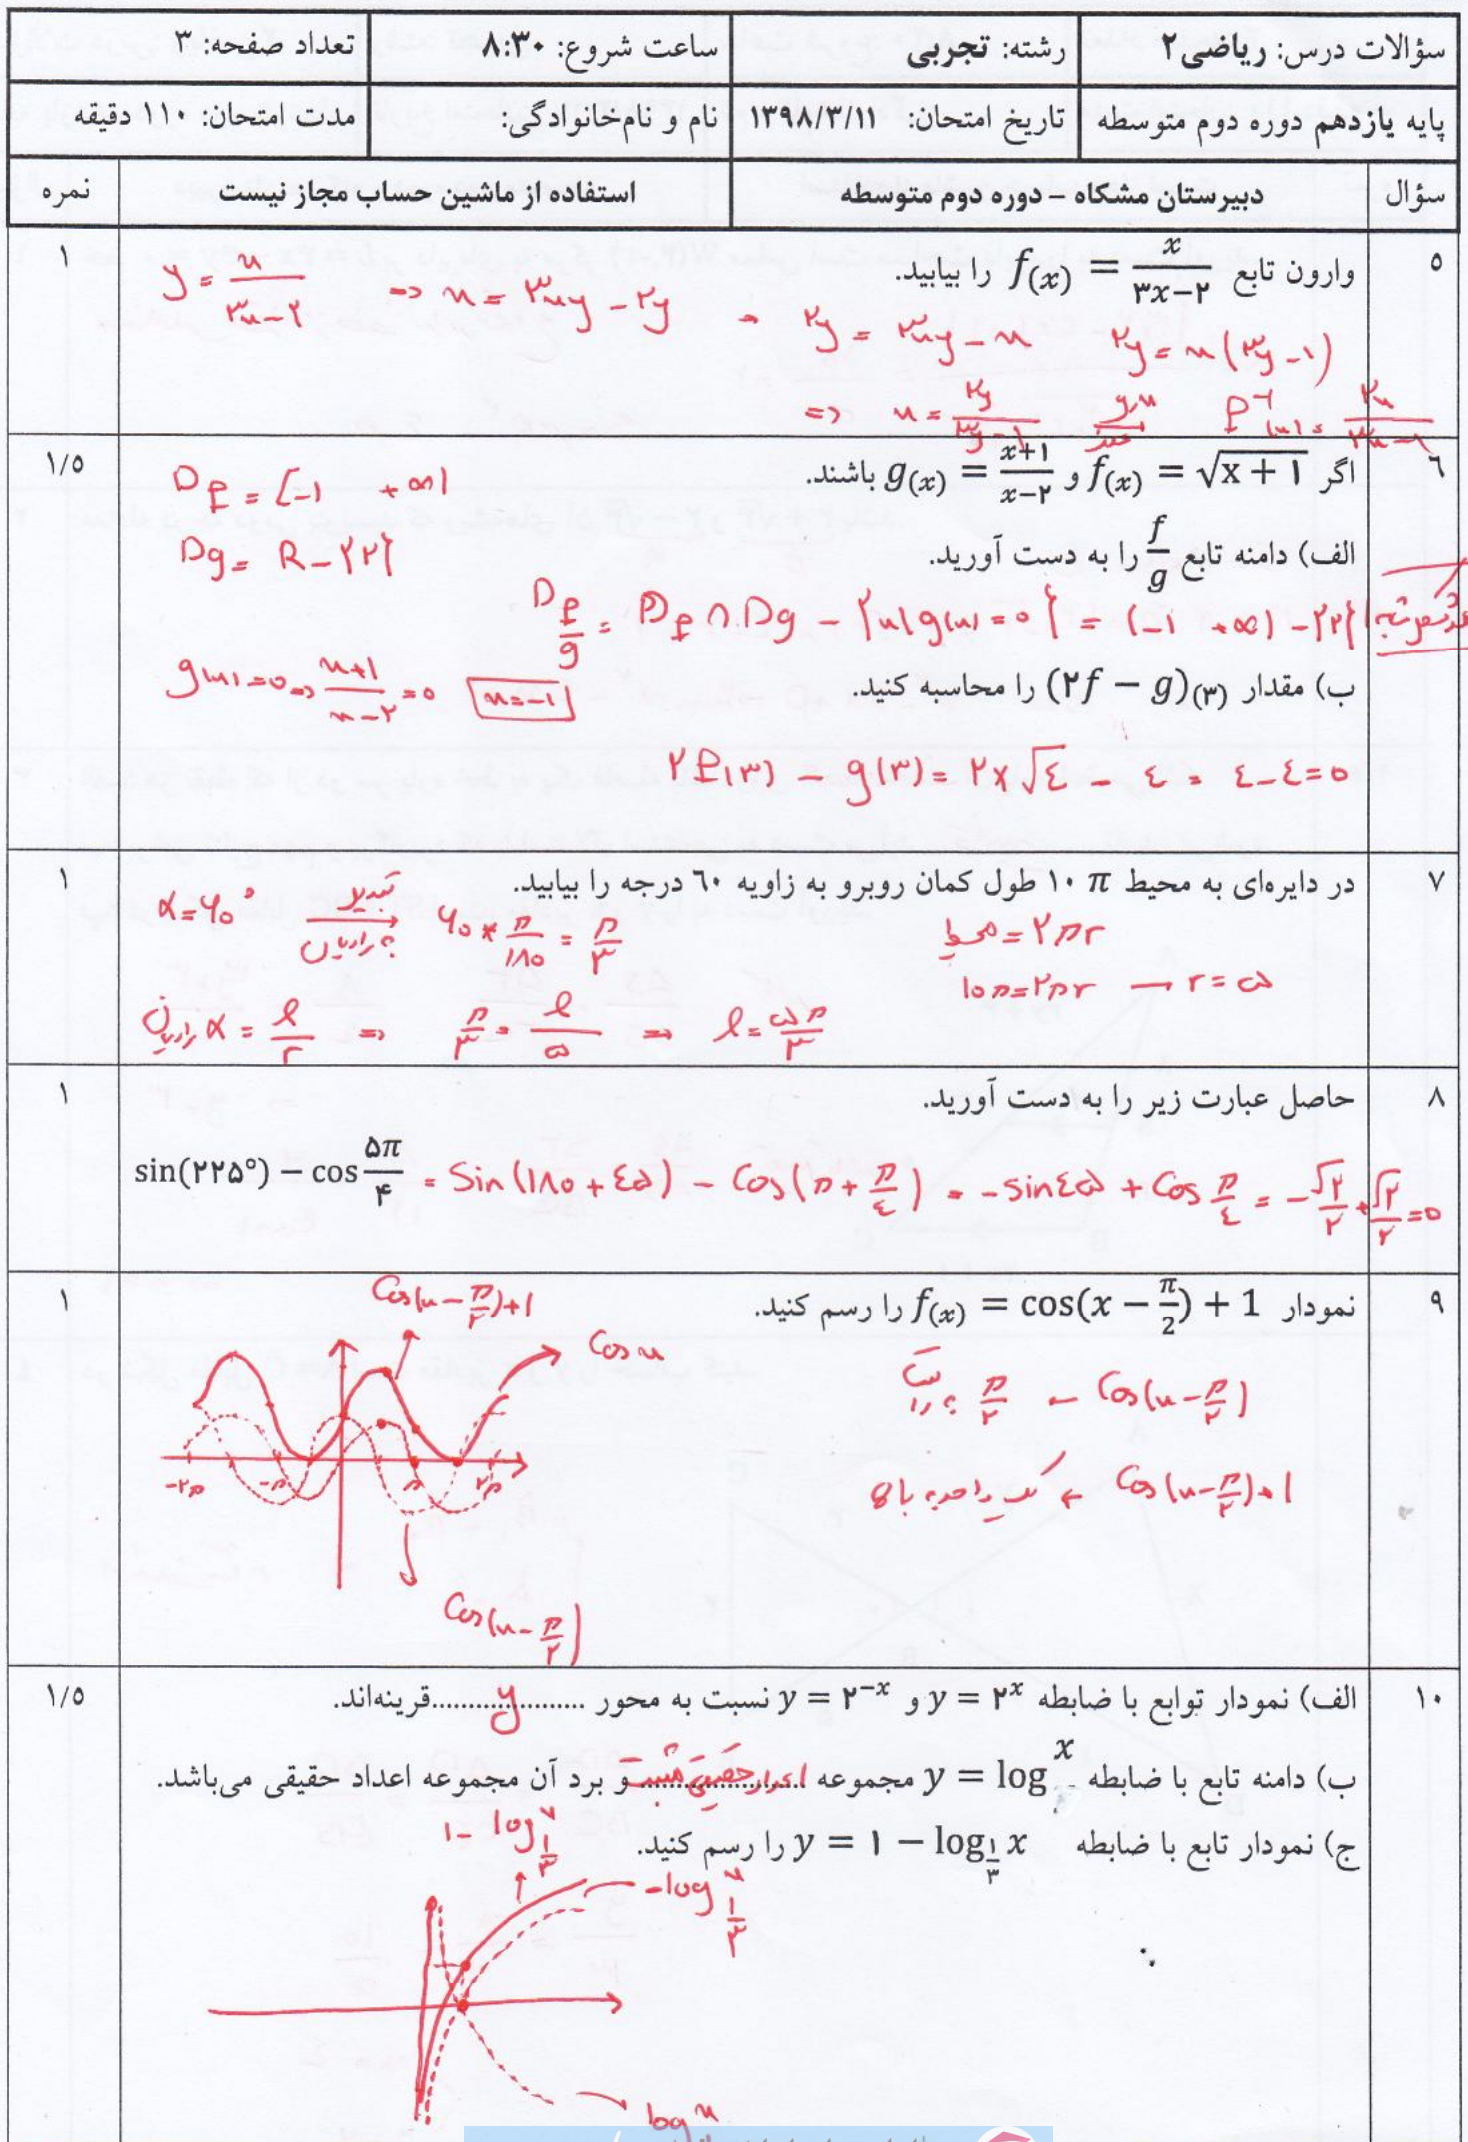 سؤالات درس: ریاضی۲ رشته: تجربی ساعت شروع: ۸:۳۰ تعداد صفحه: ۳
پایه یازدهم دوره دوم متوسطه تاریخ امتحان: ۱۳۹۸/۳/۱۱ نام و نام‌خانوادگی: مدت امتحان: ۱۱۰ دقیقه
سؤال دبیرستان مشکاه – دوره دوم متوسطه استفاده از ماشین حساب مجاز نیست نمره
۵ وارون تابع f(x) = x/(۳x−۲) را بیابید. ۱
y = x/(۳x−۲) => x = ۳xy − ۲y → ۲y = ۳xy − x ۲y = x(۳y−۱)
=> x = ۲y/(۳y−۱) f⁻¹(x) = ۲x/(۳x−۱)
۶ اگر f(x) = √(x+۱) و g(x) = (x+۱)/(x−۲) باشند. ۱/۵
D_f = [−۱ +∞)
الف) دامنه تابع f/g را به دست آورید.
D_g = R − {۲}
D_f/g = D_f ∩ D_g − {x|g(x)=۰} = (−۱ +∞) − {۲}
g(x)=۰ => (x+۱)/(x−۲) = ۰ x=−۱
ب) مقدار (۲f − g)(۳) را محاسبه کنید.
۲f(۳) − g(۳) = ۲×√٤ − ٤ = ٤−٤=۰
۷ در دایره‌ای به محیط ۱۰π طول کمان روبرو به زاویه ٦۰ درجه را بیابید. ۱
α=۶۰° تبدیل به رادیان ۶۰ × π/۱۸۰ = π/۳
محیط = ۲πr
۱۰π=۲πr → r=۵
رادیان α = l/r => π/۳ = l/۵ => l = ۵π/۳
۸ حاصل عبارت زیر را به دست آورید. ۱
sin(۲۲۵°) − cos ۵π/۴ = Sin(۱۸۰+٤۵) − Cos(π+π/٤) = −sin٤۵ + Cos π/٤ = −√۲/۲ + √۲/۲ = ۰
۹ نمودار f(x) = cos(x − π/2) + 1 را رسم کنید. ۱
Cos(x − π/۲)+۱
Cos x
Cos(x−π/۲) → π/۲ به راست
Cos(x−π/۲)+۱ → یک واحد به بالا
−۲π −π π ۲π
Cos(x−π/۲)
۱۰ الف) نمودار توابع با ضابطه y = ۲^x و y = ۲^−x نسبت به محور ..... y ..... قرینه‌اند. ۱/۵
ب) دامنه تابع با ضابطه y = log x مجموعه اعداد حقیقی مثبت و برد آن مجموعه اعداد حقیقی می‌باشد.
ج) نمودار تابع با ضابطه y = ۱ − log_۱/۳ x را رسم کنید.
۱− log_۱/۳ x
−log_۱/۳ x
log x